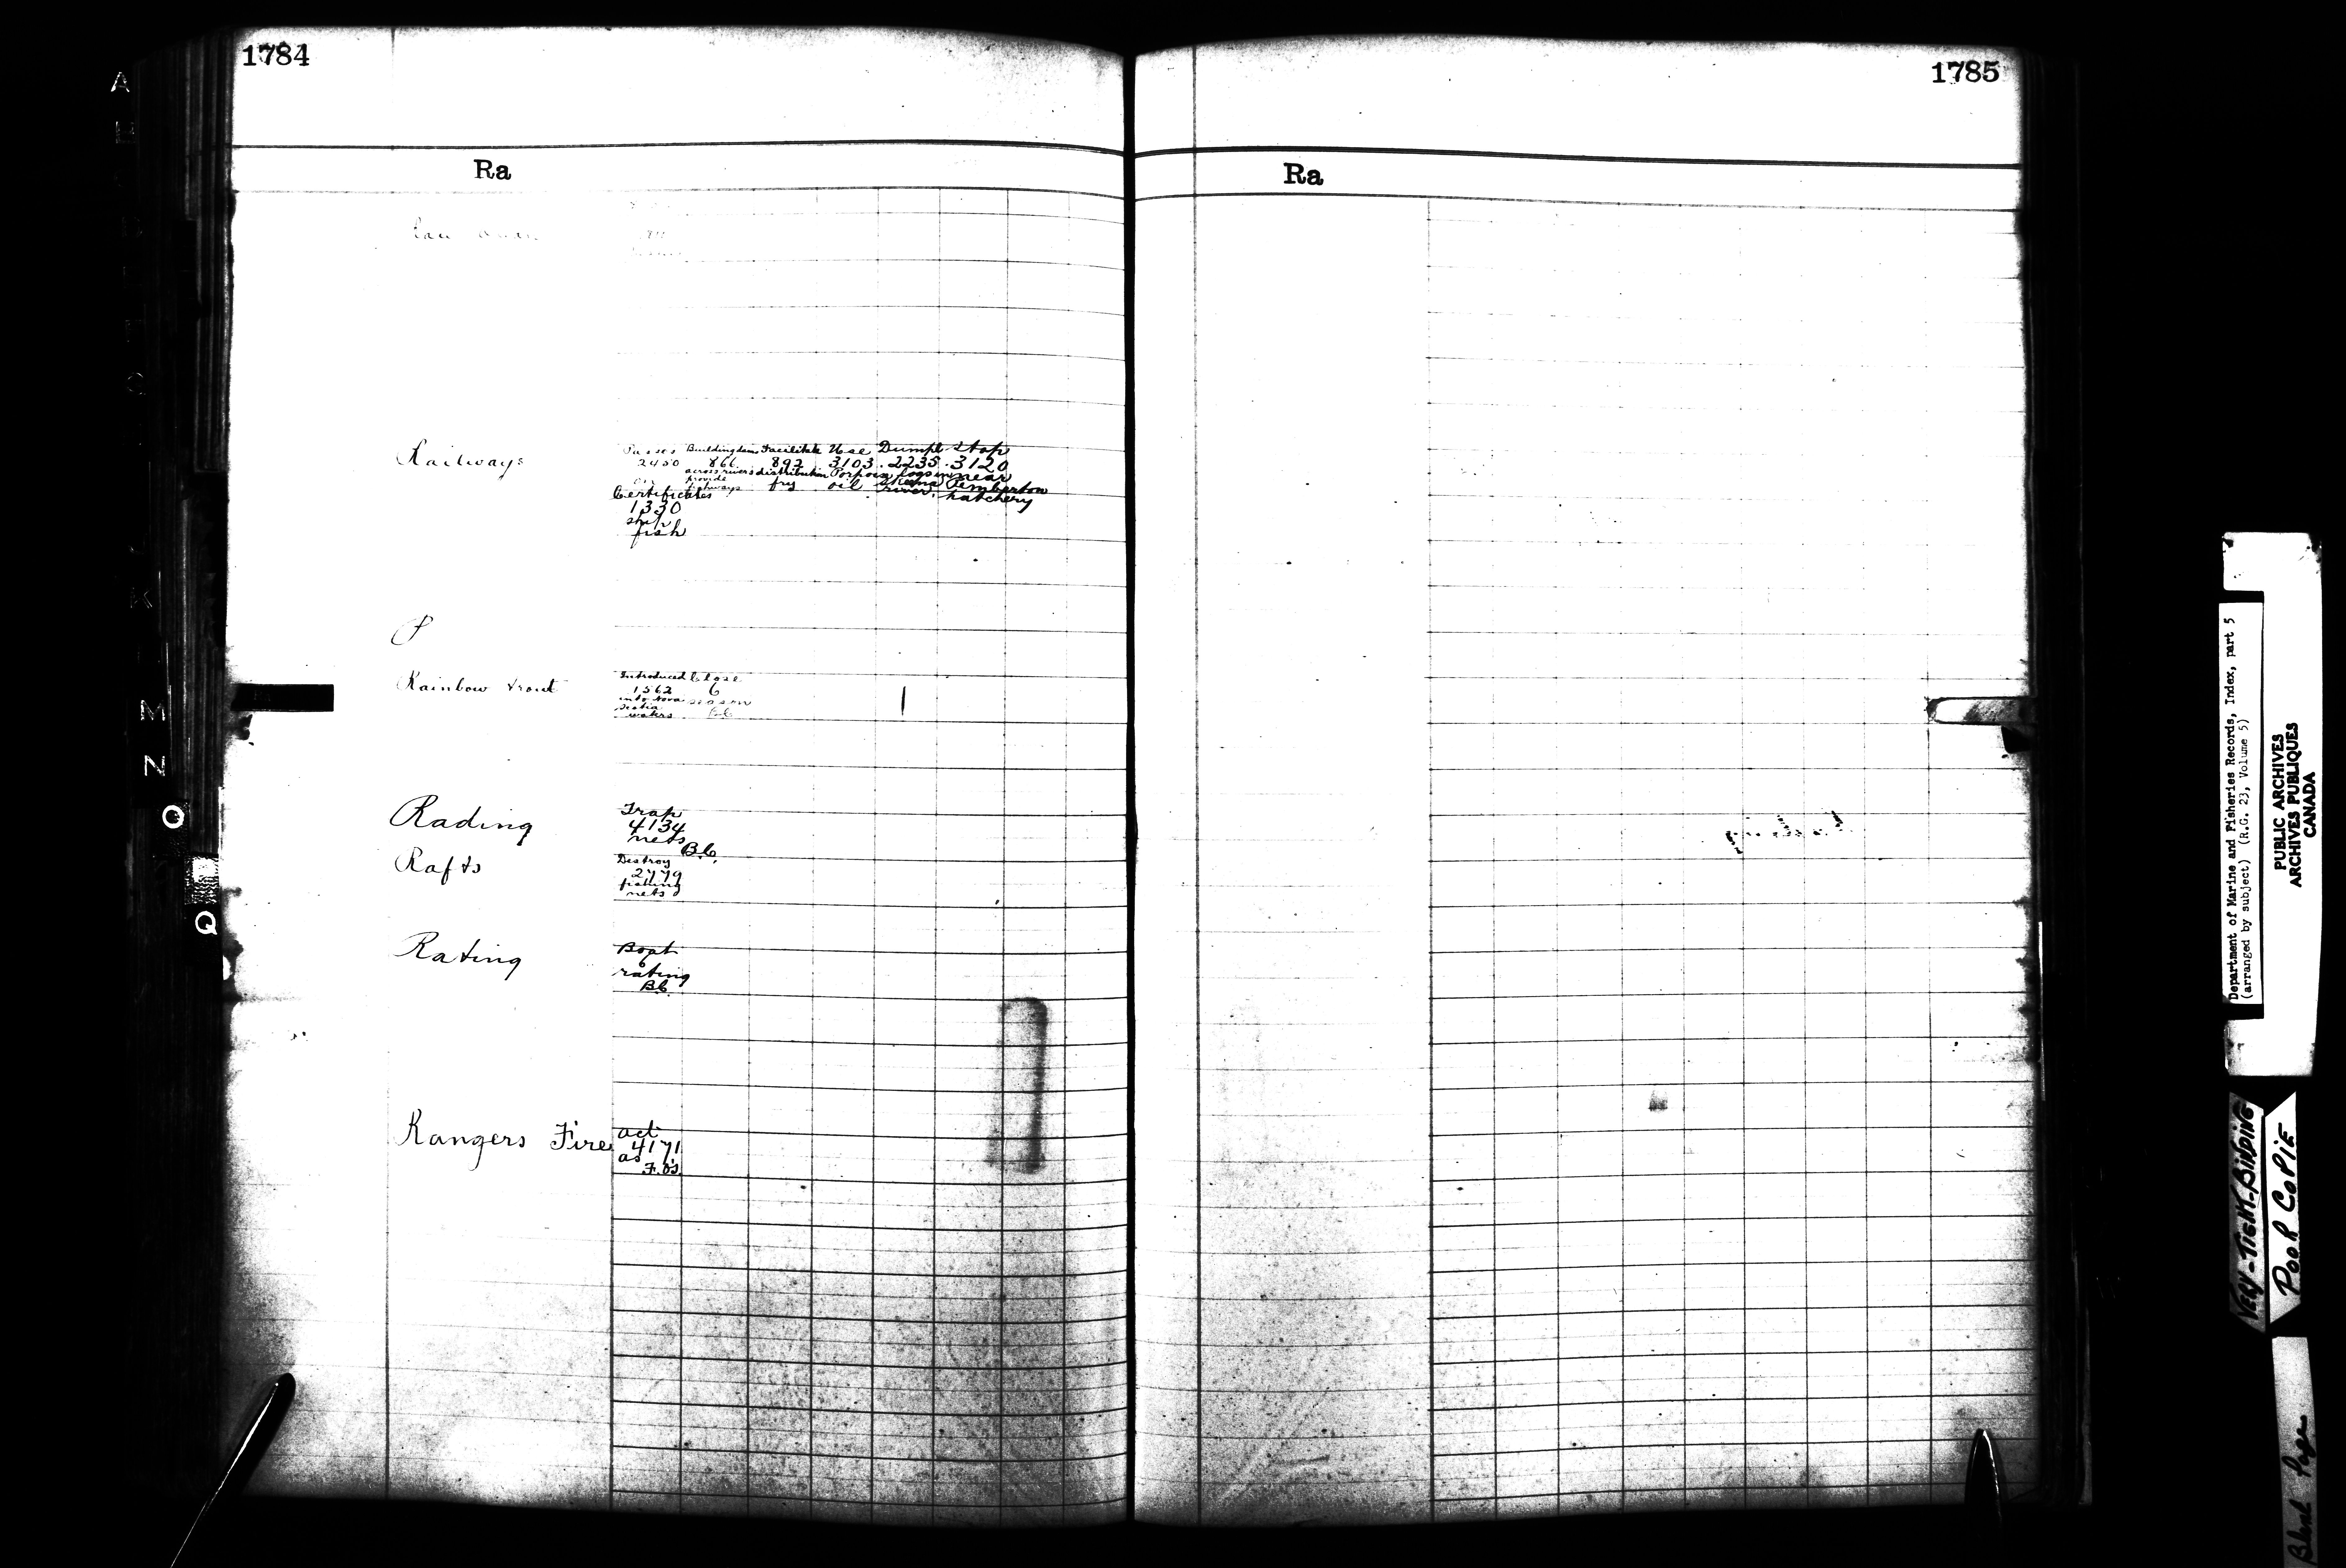 1784
Ra
Railways
Passes Building dams Facilitate Use Dump Stop
2450 866 892 3103 2235 3120
across rivers distribution Porpoise logs in near
provide fry oil Skeena Pemberton
fishways river hatchery
Certificates
1330
fish
Rainbow trout
Introduced Close
1562 6
into Nova season
Scotia
waters
Rading
Trap
4134
nets
B.C.
Rafts
Destroy
2779
fishing
nets
Rating
Boat
rating
BC
Rangers Fire
act
4171
as
F.O's.
1785
Ra
A
K
M
N
O
Q
Department of Marine and Fisheries Records, Index, part 5
(arranged by subject) (R.G. 23, Volume 5)
PUBLIC ARCHIVES
ARCHIVES PUBLIQUES
CANADA
VERY-TIGHT-BINDING
POOR COPIE
Blank Page